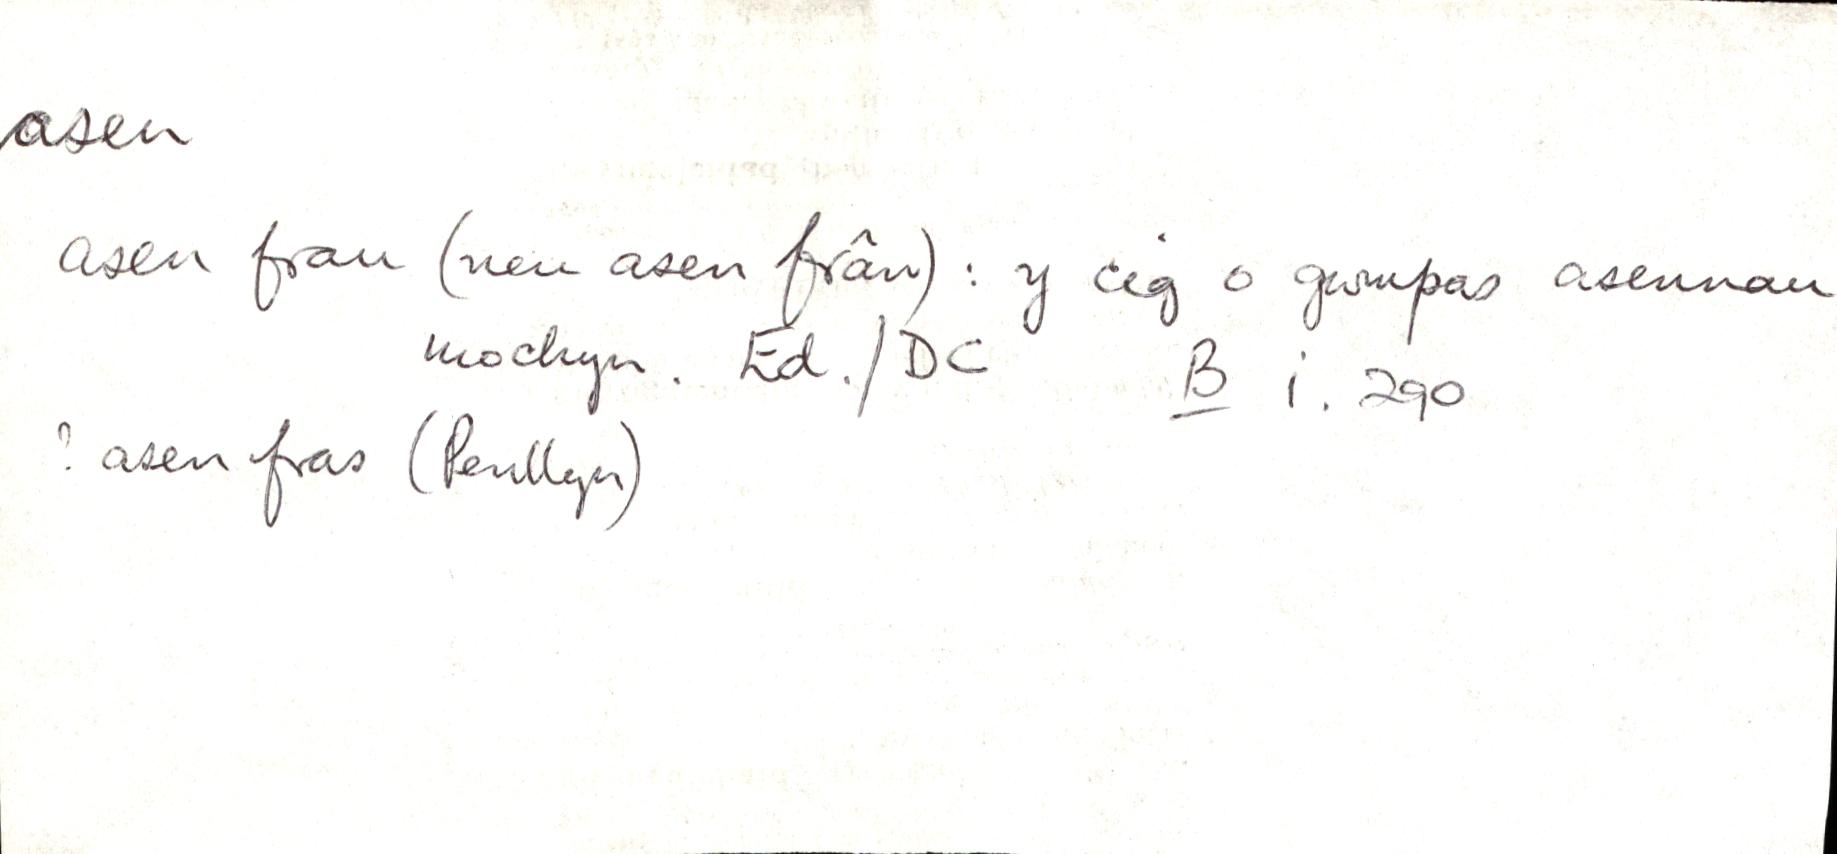 asen
asen frau (neu asen frân) : y cig o gwmpas asennau
mochyn. Ed./DC B i. 290
? asen fras (Penllyn)